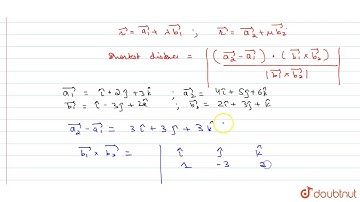 r⃗ = a₁⃗ + λ b₁⃗ ; r⃗ = a₂⃗ + μ b₂⃗
Shortest distance = | (a₂⃗ - a₁⃗) · (b₁⃗ × b₂⃗) / |b₁⃗ × b₂⃗| |
a₁⃗ = î + 2ĵ + 3k̂ ; a₂⃗ = 4î + 5ĵ + 6k̂
b₁⃗ = î - 3ĵ + 2k̂ ; b₂⃗ = 2î + 3ĵ + k̂
a₂⃗ - a₁⃗ = 3î + 3ĵ + 3k̂
b₁⃗ × b₂⃗ = | î ĵ k̂
1 -3 2
doubtnut